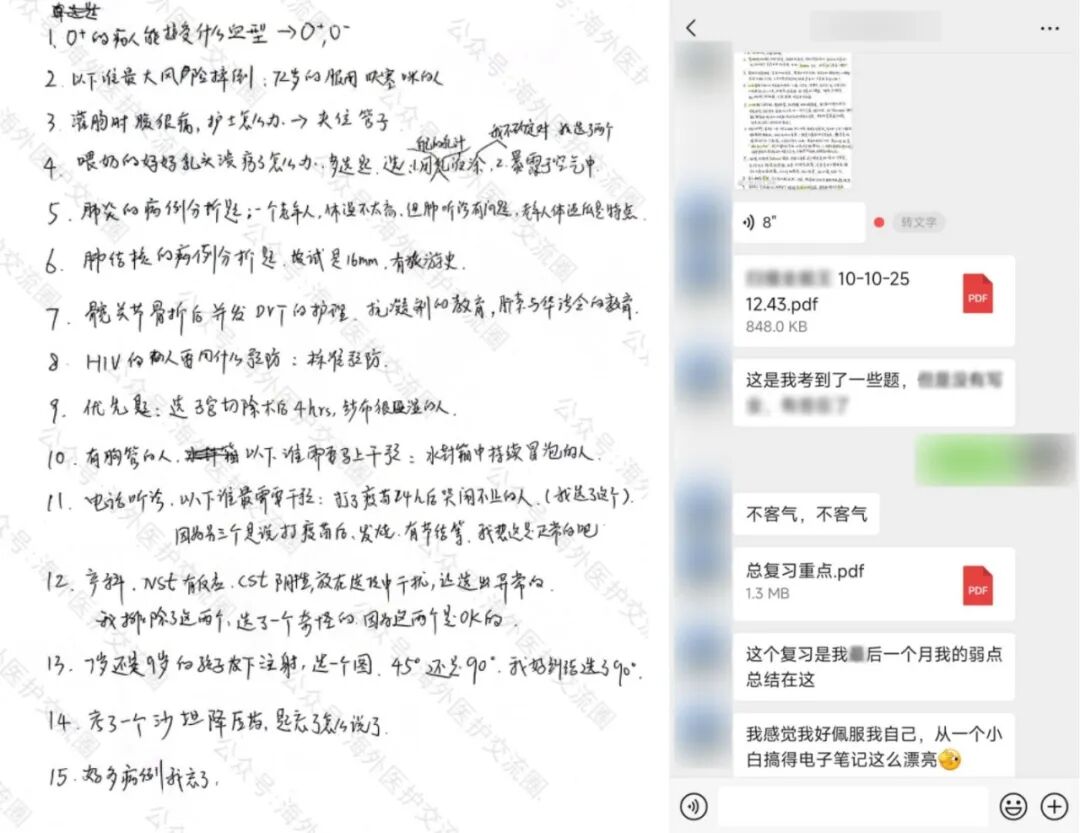 单选题
1. O⁺的病人能接受什么血型 → O⁺, O⁻
2. 以下谁最大风险摔倒：72岁的服用呋塞咪的人
3. 灌肠时腹很痛，护士怎么办 → 夹住管子
我不确定对 我选了两个
4. 喂奶的妈妈乳头淡病了怎么办. 多选题. 选 1.用乳液涂, 2.暴露于空气中.
5. 肺炎的病例分析题：一个老年人, 体温不太高, 但肺听诊有问题, 老年人体温低是特点.
6. 肺结核的病例分析题. 皮试是16mm, 有旅游史.
7. 髋关节骨折后并发DVT的护理. 抗凝剂的教育, 肝素与华法令的教育.
8. HIV的病人要用什么预防：标准预防.
9. 优先题：选子宫切除术后4hrs, 纱布很湿的人.
10. 有胸管的人. 以下谁需要马上干预：水封箱中持续冒泡的人.
11. 电话听诊. 以下谁最需要干预：打了疫苗24h后哭闹不止的人.（我选了这个）.
因为另三个是说打疫苗后、发烧. 有节结等. 我想这是正常的吧
12. 产科. NST有反应. CST阴性, 放在选项中干扰, 让选出异常的.
我排除了这两个, 选了一个奇怪的. 因为这两个是OK的.
13. 7岁还是9岁的孩子皮下注射, 选一个图. 45°还是90°. 我好像选了90°.
14. 考了一个沙坦降压药, 是忘了怎么说了.
15. 好多病例我忘了.
公众号:海外医护交流圈
8"
转文字
10-10-25
12.43.pdf
PDF
848.0 KB
这是我考到了一些题，
不客气，不客气
总复习重点.pdf
PDF
1.3 MB
这个复习是我最后一个月我的弱点
总结在这
我感觉我好佩服我自己，从一个小
白搞得电子笔记这么漂亮